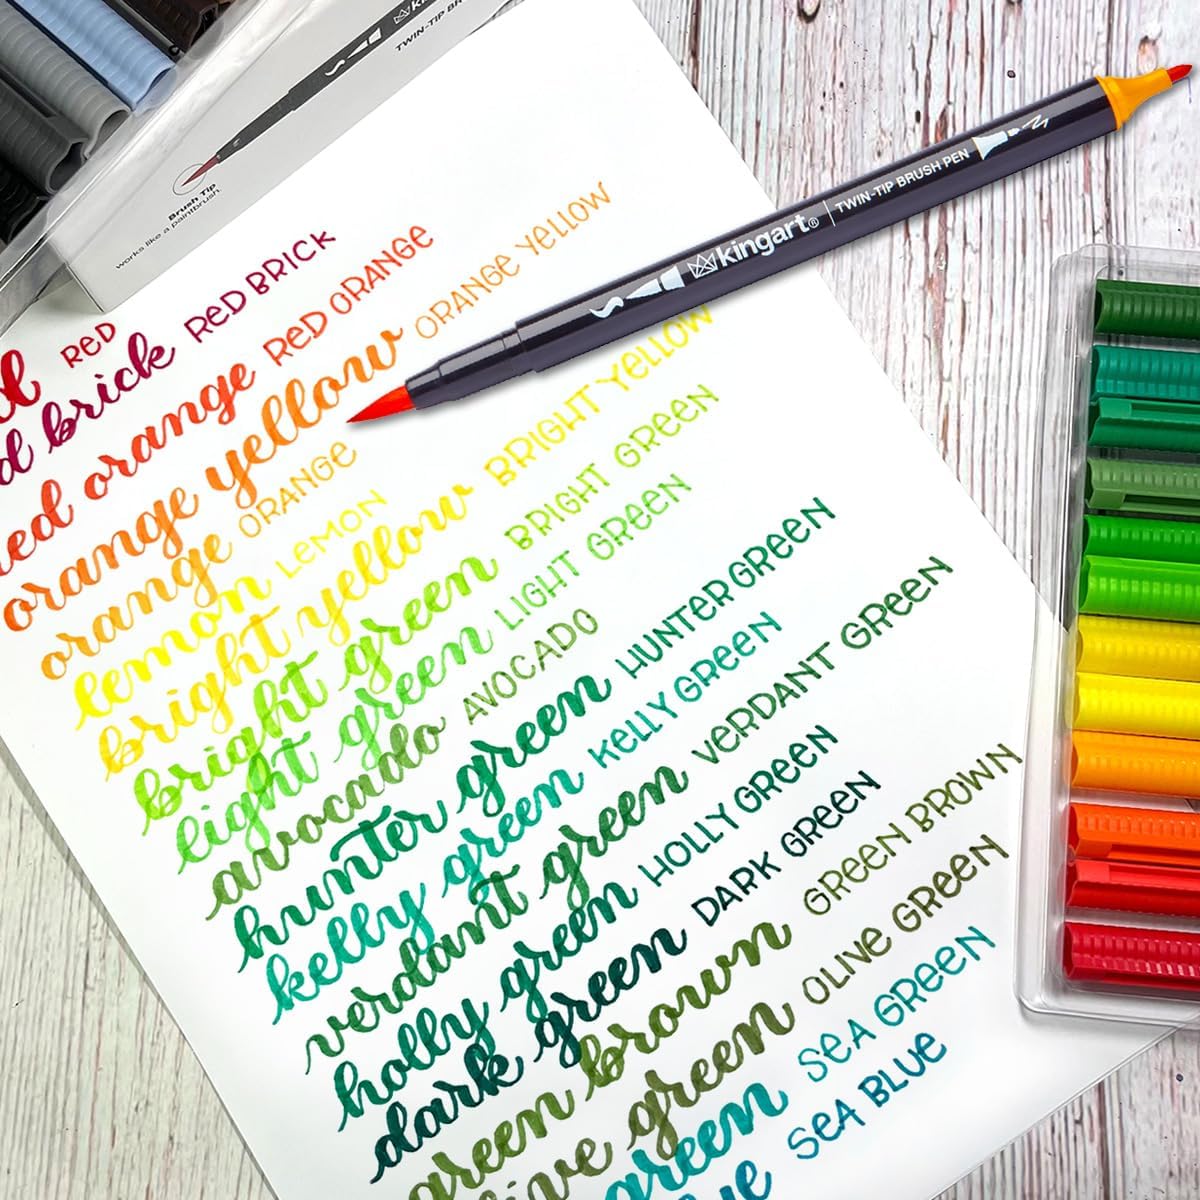 TWIN-TIP BR
Brush Tip
works like a paintbrush.
kingart® | TWIN-TIP BRUSH PEN
RED
brick RED BRICK
red orange RED ORANGE
orange yellow ORANGE YELLOW
orange ORANGE
lemon LEMON
bright yellow BRIGHT YELLOW
bright green BRIGHT GREEN
light green LIGHT GREEN
avocado AVOCADO
hunter green HUNTER GREEN
kelly green KELLY GREEN
verdant green VERDANT GREEN
holly green HOLLY GREEN
dark green DARK GREEN
green brown GREEN BROWN
olive green OLIVE GREEN
green SEA GREEN
SEA BLUE